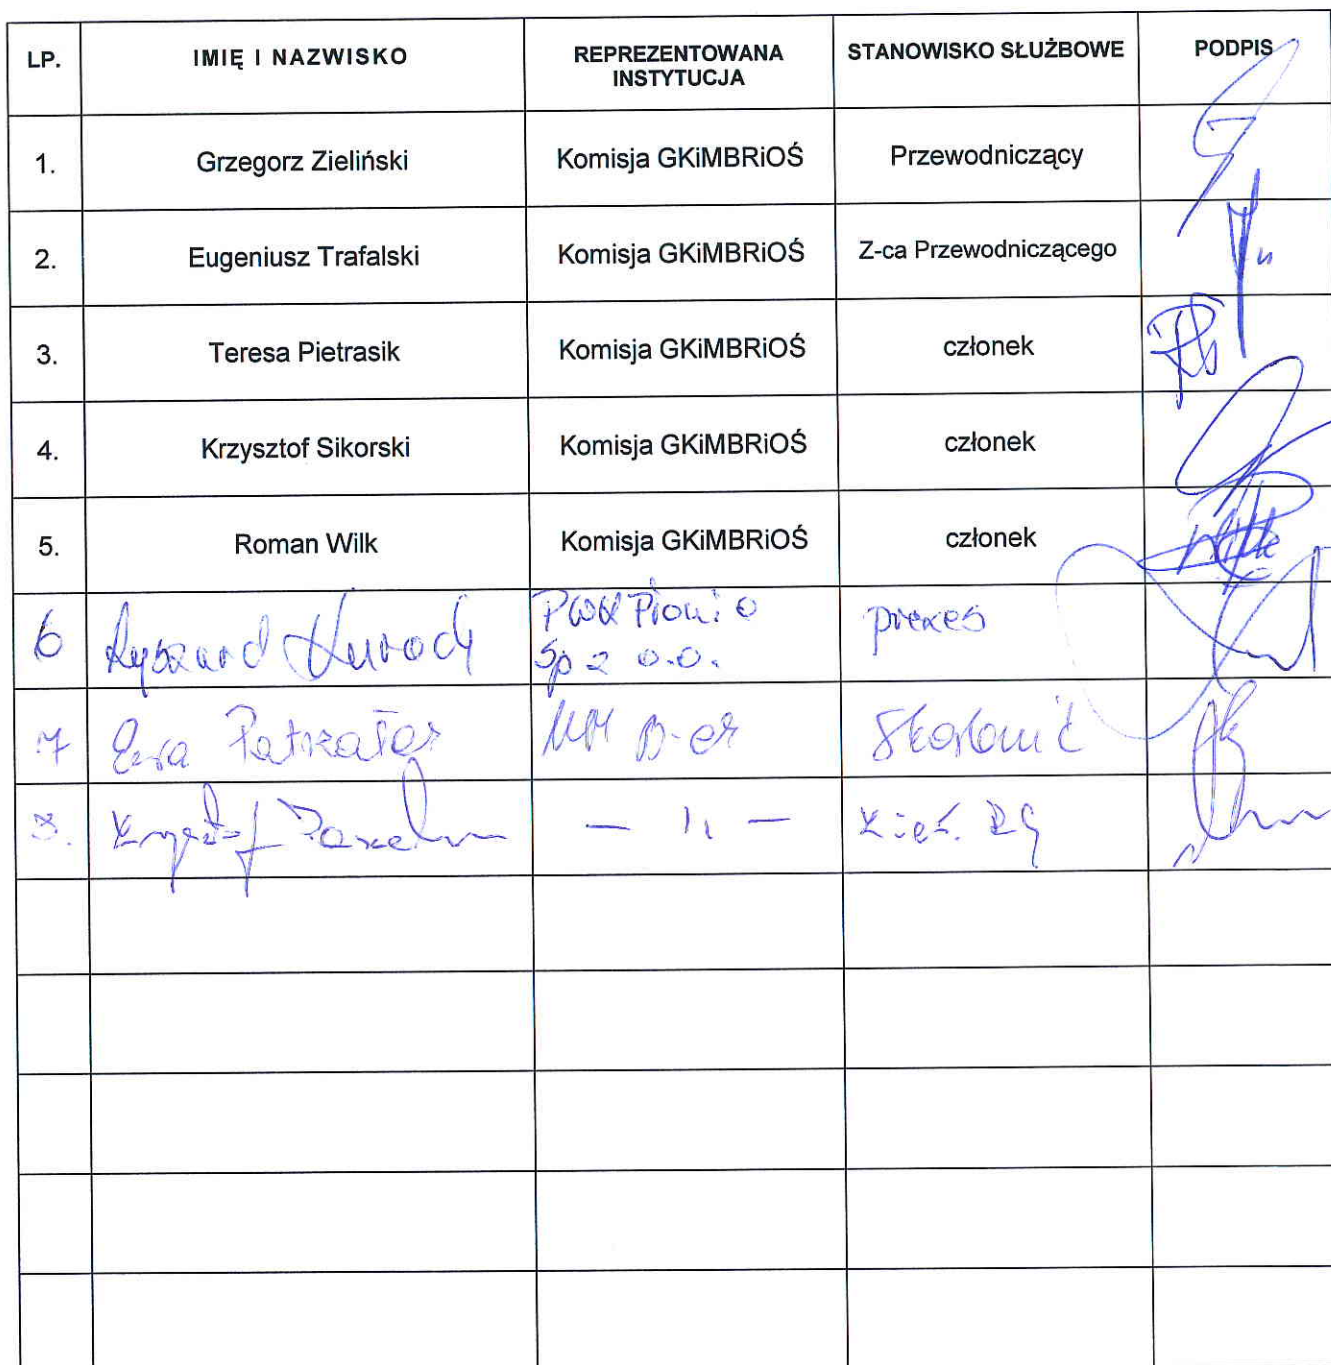 LP. IMIĘ I NAZWISKO REPREZENTOWANA INSTYTUCJA STANOWISKO SŁUŻBOWE PODPIS
1. Grzegorz Zieliński Komisja GKiMBRiOŚ Przewodniczący
2. Eugeniusz Trafalski Komisja GKiMBRiOŚ Z-ca Przewodniczącego
3. Teresa Pietrasik Komisja GKiMBRiOŚ członek
4. Krzysztof Sikorski Komisja GKiMBRiOŚ członek
5. Roman Wilk Komisja GKiMBRiOŚ członek
6 Ryszard prezes
Sp z o.o.
7 Ewa Skarbnik
8. Krzysztof — 11 —